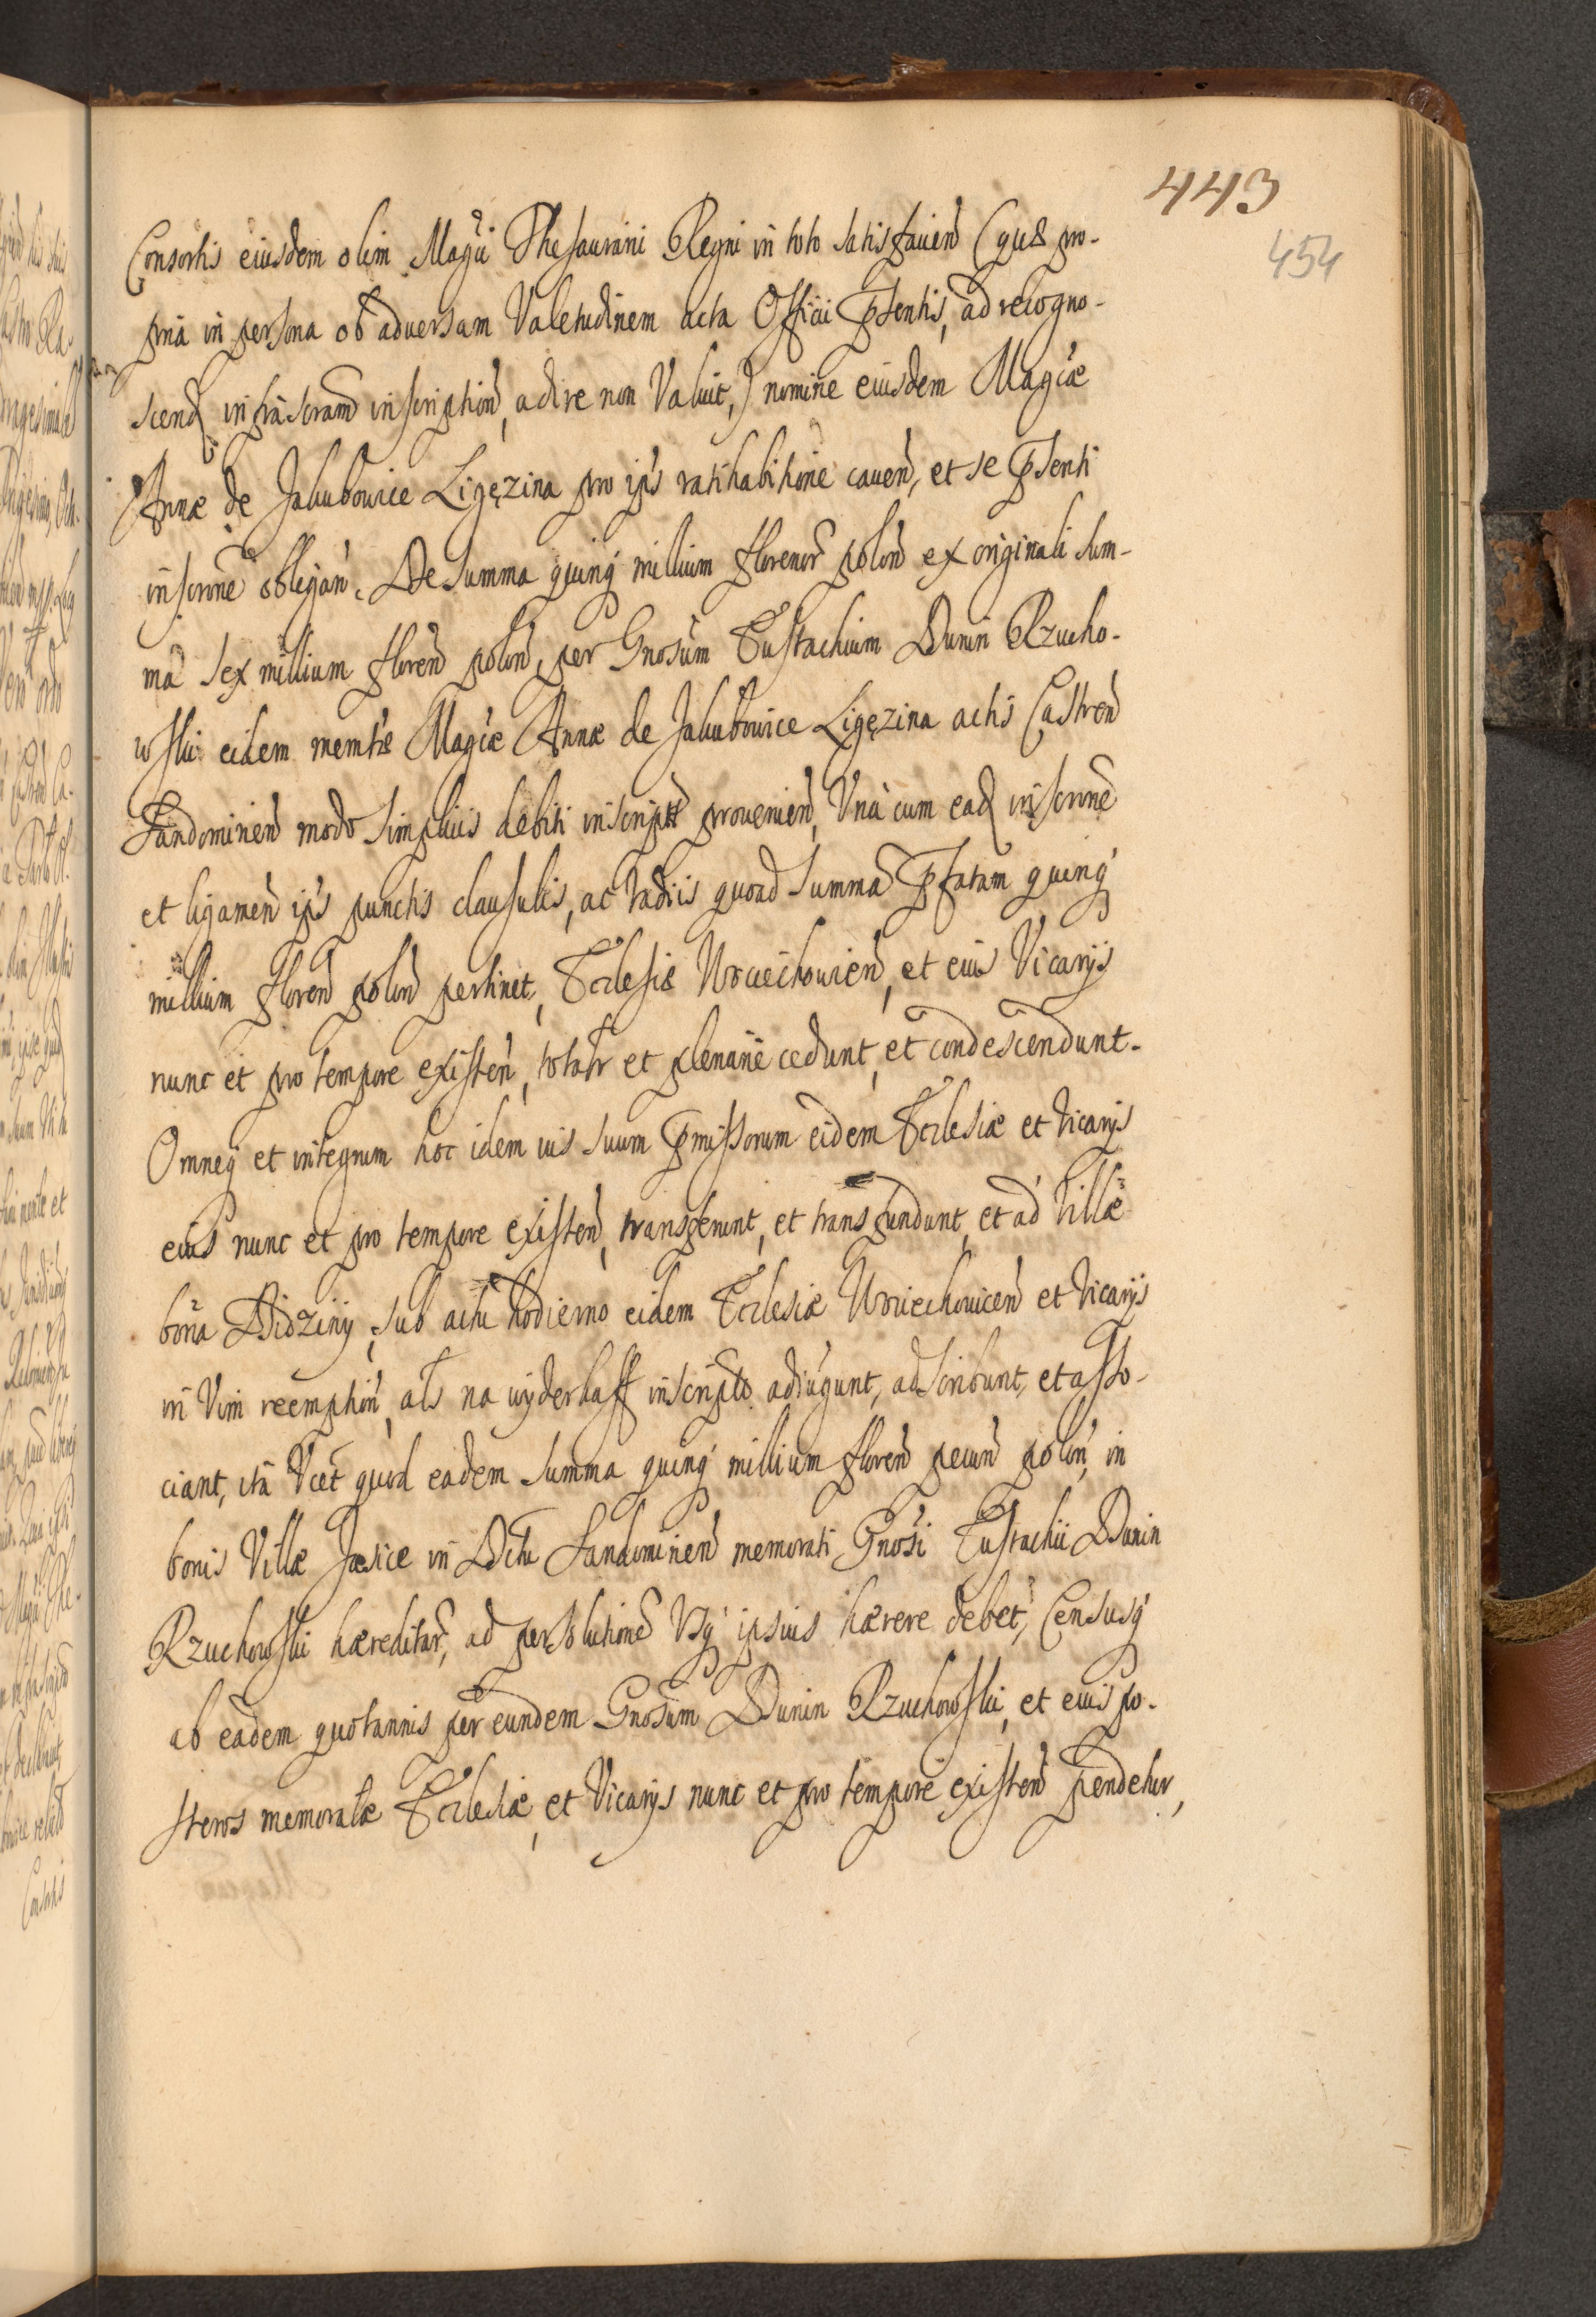 443
454
Consortis eiusdem olim Magci Thesaurarii Regni in toto satisfacien (quæ pro-
pria in persona ob aduersam Valetudinem acta Officii Pntis, ad recogno-
scend infrascram inscription, adire non Valuit,) nomine eiusdem Magcæ
Annæ de Jakubowice Ligęzina pro ips ratihabitione cauen, et se Pnti
inscrone obligan. De summa quinq millium florenor polon ex originali sum-
ma sex millium floren polon, per Gnosum Eustachium Dunin Rzucho-
wski eidem memtæ Magcæ Annæ de Jakubowice Ligęzina actis Castren
Sandominen modo simplicis debiti inscript prouenien, Vna cum ead inscrone
et ligamen ips punctis clausulis, ac Vadiis quoad summa Pfatam quinq
millium floren polon pertinet, Ecclesiæ Wociechouien, et eius Vicarijs
nunc et pro tempore existen, totalr et plenarie cedunt, et condescendunt.
Omneq et integrum hoc idem ius suum Pmissorum eidem Ecclesiæ et Vicarijs
eius nunc et pro tempore existen, transferunt, et transfundunt, et ad Villæ
bona Bidziny, sub actu hodierno eidem Ecclesiæ Wociechouicen et Vicarijs
in Vim reemption, als na wyderkaff inscripto adiugunt, adscribunt, et asso-
ciant, ita Vcet quod eadem summa quinq millium floren pecun polon, in
bonis Villæ Jasice in Dctu Sandominen memorati Gnosi Eustachii Dunin
Rzuchowski hæreditar, ad persolutione Vsq ipsius hærere debet, Censusq
ab eadem quotannis per eundem Gnosum Dunin Rzuchowski, et eius po-
steros memoratæ Ecclesiæ, et Vicarijs nunc et pro tempore existen pendetur,